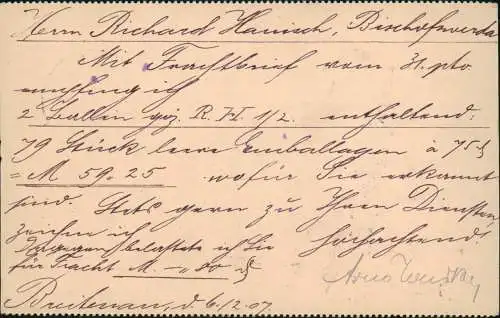 Herrn Richard Hanisch, Bischofswerda
Mit Frachtbrief vom 31. pto
empfing ich
2 Ballen gez. R.H. 1/2. enthaltend:
79 Stück leere Emballagen à 75 ₰
= M 59.25 wofür Sie erkannt
sind. Stets gern zu Ihren Diensten,
zeichne ich hochachtend!
Dagegen belastete ich Sie
für Fracht M. –„80 ₰
Arno
Breitenau, d. 6/12.07.